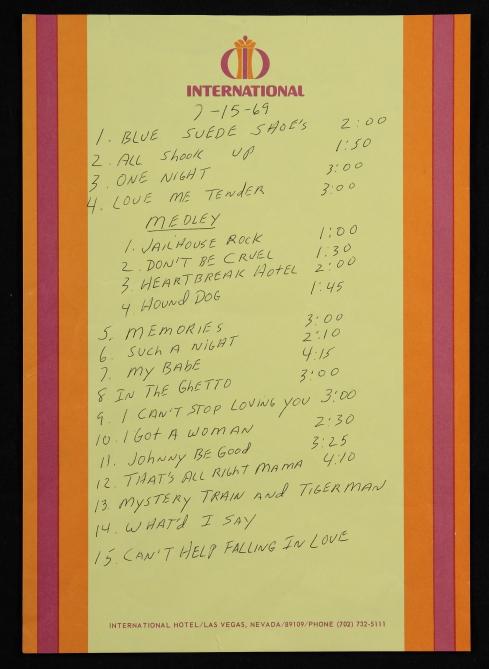 INTERNATIONAL
7-15-69
1. BLUE SUEDE SHOE'S 2:00
2. ALL SHOOK UP 1:50
3. ONE NIGHT 3:00
4. LOVE ME TENDER 3:00
MEDLEY
1. JAILHOUSE ROCK 1:00
2. DON'T BE CRUEL 1:30
3. HEARTBREAK HOTEL 2:00
4 HOUND DOG 1:45
5. MEMORIES 3:00
6. SUCH A NIGHT 2:10
7. MY BABE 4:15
8 IN THE GHETTO 3:00
9. I CAN'T STOP LOVING YOU 3:00
10. I GOT A WOMAN 2:30
11. JOHNNY BE GOOD 3:25
12. THAT'S ALL RIGHT MAMA 4:10
13. MYSTERY TRAIN AND TIGERMAN
14. WHAT'D I SAY
15. CAN'T HELP FALLING IN LOVE
INTERNATIONAL HOTEL/LAS VEGAS, NEVADA/89109/PHONE (702) 732-5111